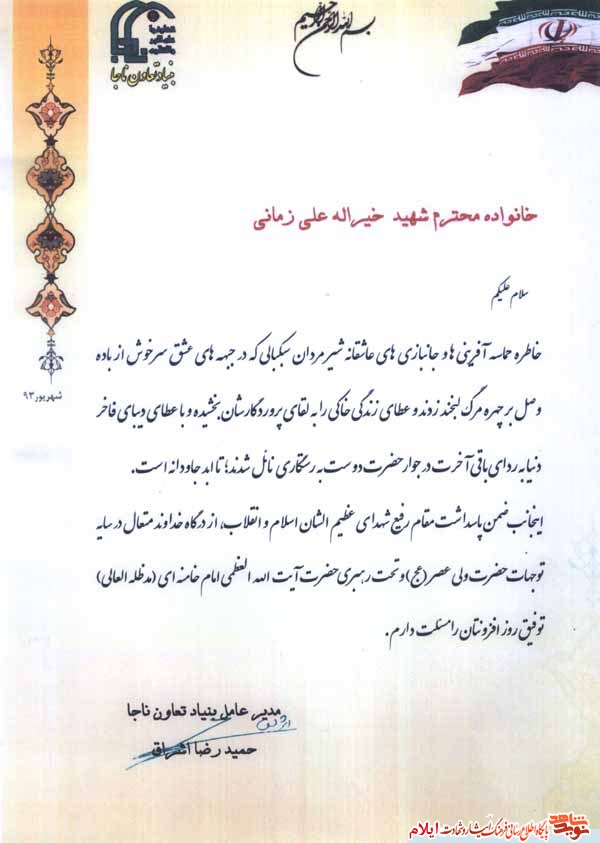 بسم الله الرحمن الرحیم
بنیاد تعاون ناجا
خانواده محترم شهید خیراله علی زمانی
سلام علیکم
خاطره حماسه آفرینی ها و جانبازی های عاشقانه شیرمردان سبکبالی که در جبهه های عشق سرخوش از باده
وصل بر چهره مرگ لبخند زدند و عطای زندگی خاکی را به لقای پروردگارشان بخشیده و با عطای دیبای فاخر
دنیا به ردای باقی آخرت در جوار حضرت دوست به رستگاری نائل شدند؛ تا ابد جاودانه است.
اینجانب ضمن پاسداشت مقام رفیع شهدای عظیم الشان اسلام و انقلاب، از درگاه خداوند متعال در سایه
توجهات حضرت ولی عصر (عج) و تحت رهبری حضرت آیت الله العظمی امام خامنه ای (مدظله العالی)
توفیق روز افزونتان را مسئلت دارم.
شهریور ۹۳
مدیر عامل بنیاد تعاون ناجا
حمید رضا اشراق
نوید شاهد
پایگاه اطلاع رسانی فرهنگ ایثار و شهادت ایلام